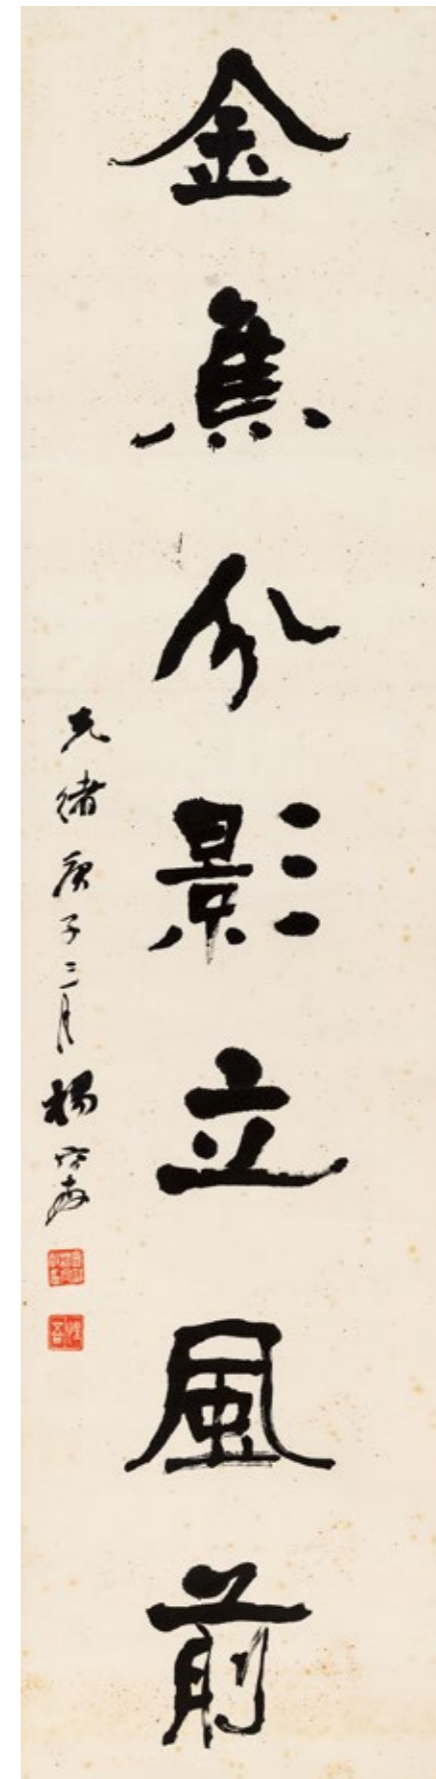 金焦分影立風前
光緒庚子三月楊守敬